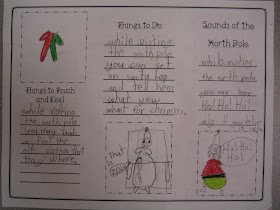 Things to Touch
and Feel
while visiting
the north pole
you may touch
or feel the
elf clothes that
they where.
Things to Do
while visiting
the north pole
you can set
on santa lap
and tell him
what yew
want for chrismis.
That
is
Sounds of the
North Pole
while visiting
the north pole
you may hear
Ho! Ho! Ho!
Ho! Ho!
Ho!